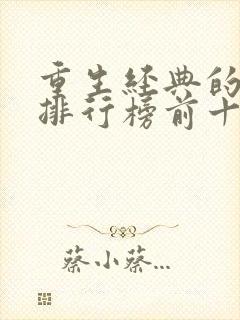 重生经典的
排行榜前十
蔡小蔡...